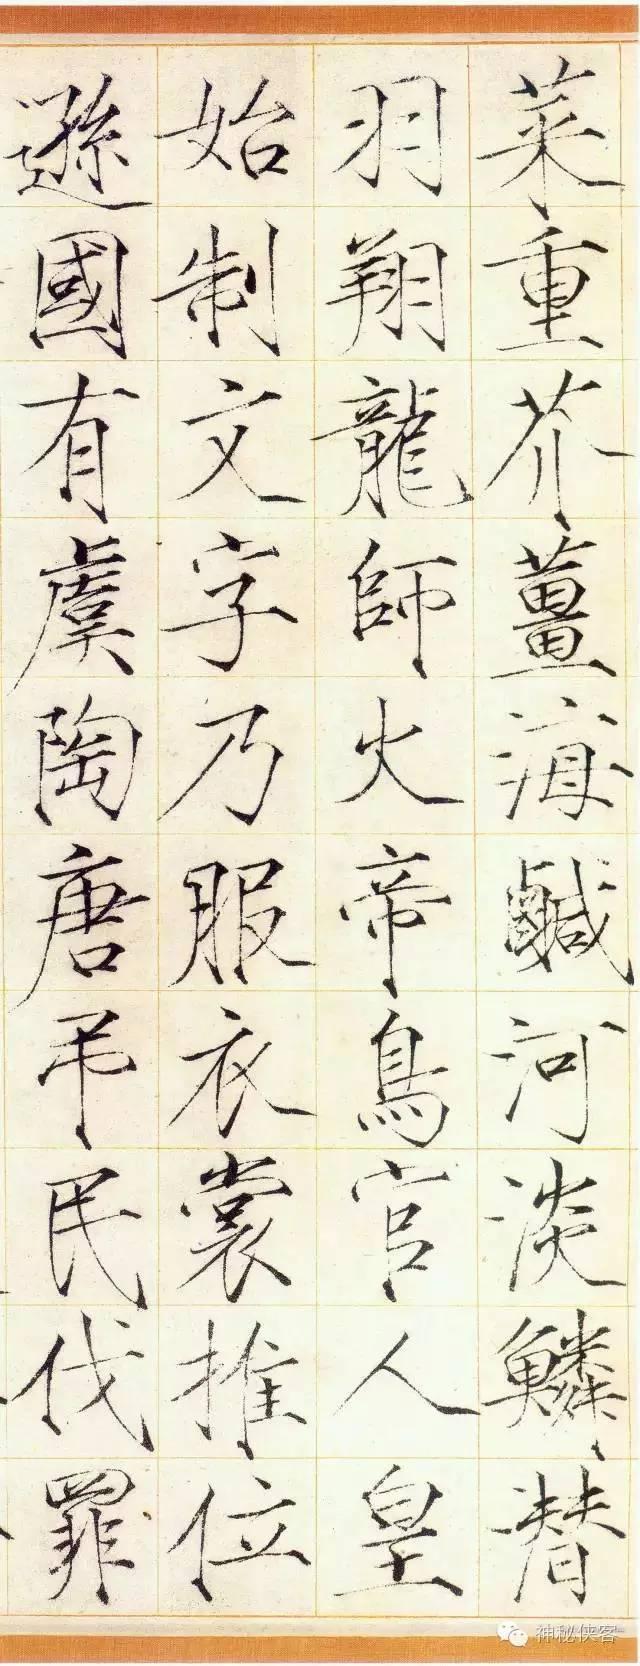 菜重芥薑海鹹河淡鱗潛
羽翔龍師火帝鳥官人皇
始制文字乃服衣裳推位
遜國有虞陶唐弔民伐罪
神秘侠客